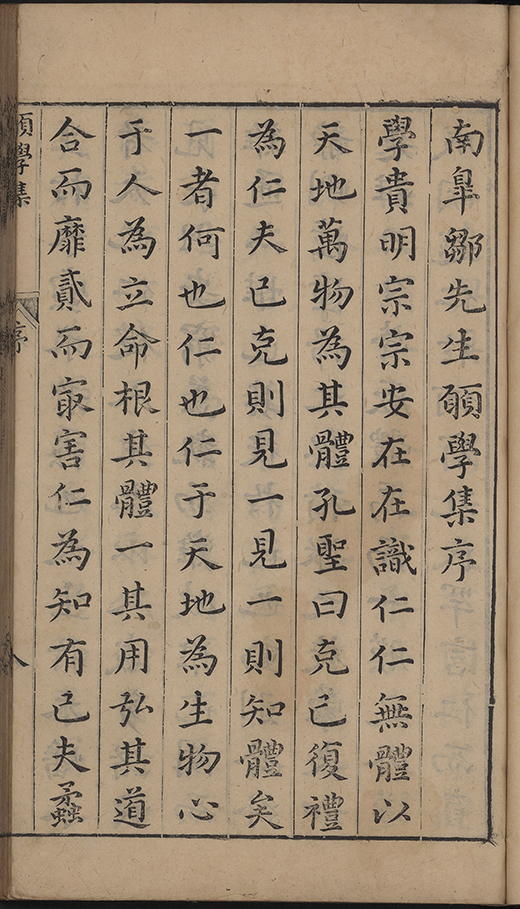 南臯鄒先生願學集序
學貴明宗宗安在在識仁仁無體以
天地萬物為其體孔聖曰克己復禮
為仁夫己克則見一見一則知體矣
一者何也仁也仁于天地為生物心
于人為立命根其體一其用弘其道
合而靡貳而㝡害仁為知有己夫蟊
願學集
序